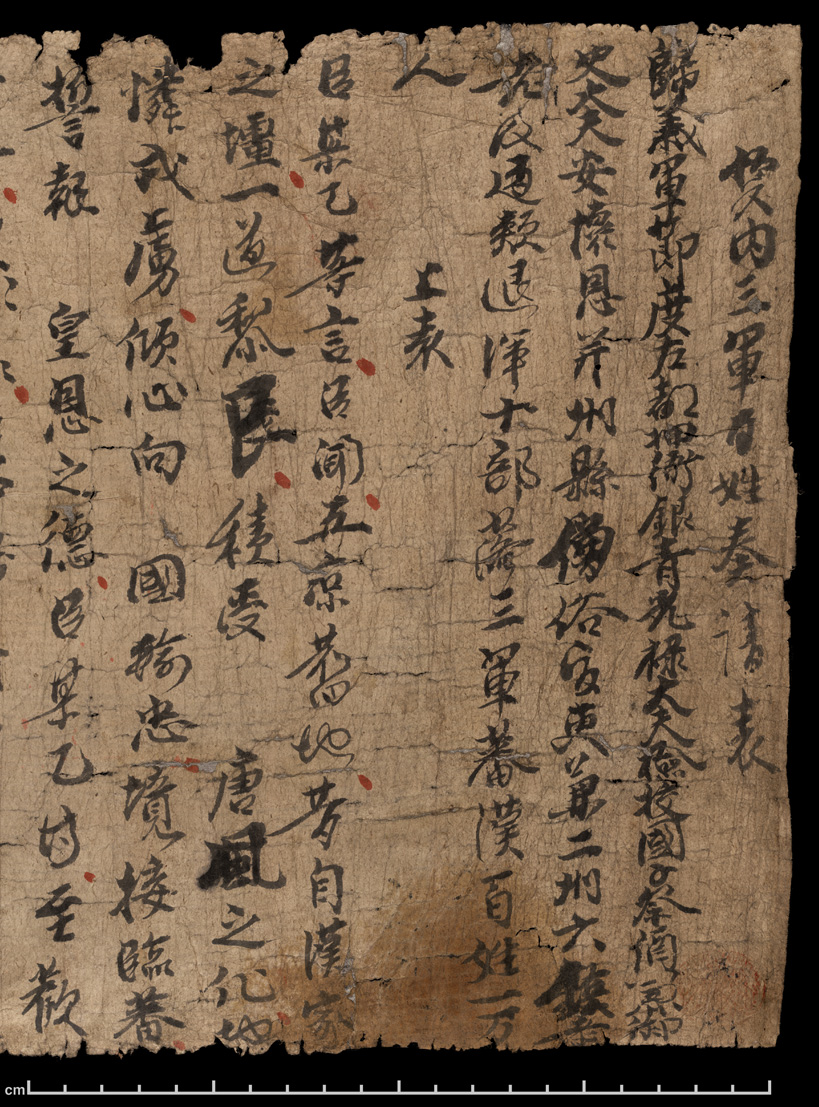 管內三軍百姓奏請表
歸義軍節度左都押衙銀青光祿大夫檢校國子祭酒兼御
史大夫安懷恩并州縣僧俗官吏兼二州六鎮耆
老及通頰退渾十部落三軍蕃漢百姓一万
人 上表
臣某乙等言臣聞五涼舊地昔自漢家
之壃一道黎民積受 唐風之化地
憐戎虜傾心向 國輸忠境接臨蕃
誓報 皇恩之德臣某乙至歡